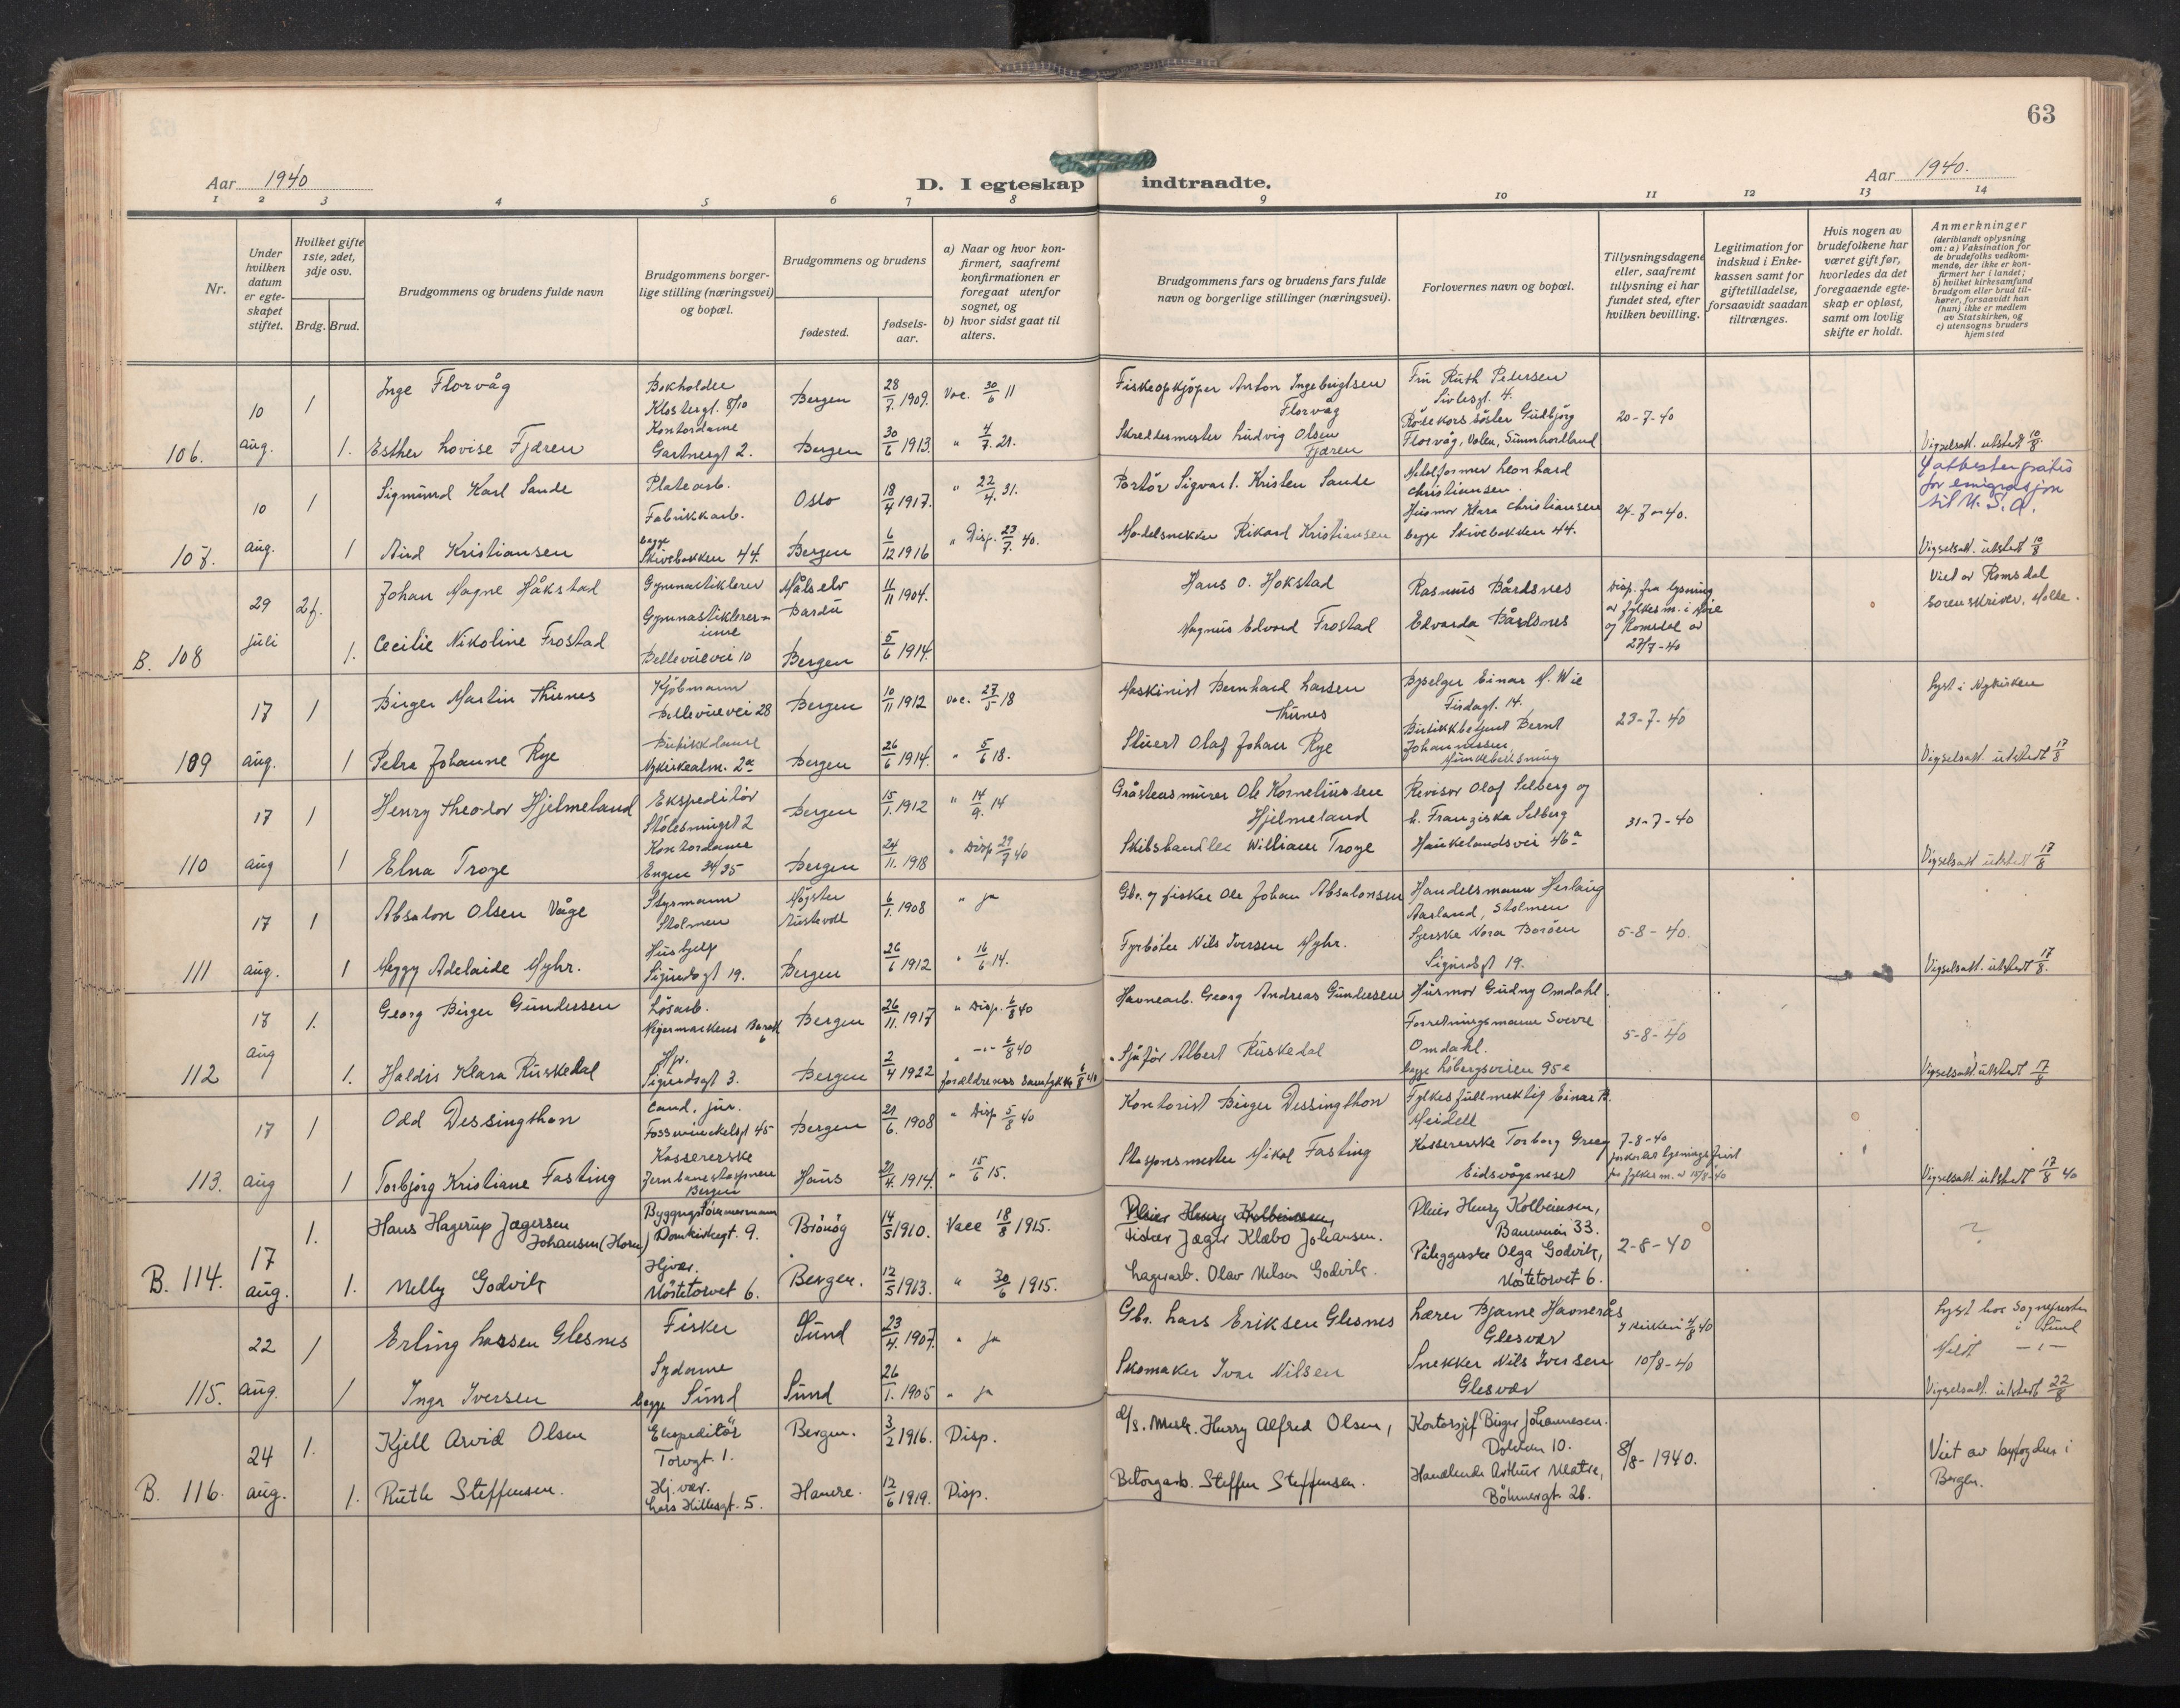 63
Aar 1940
D. I egteskap indtraadte.
Aar 1940.
1 2 3 4 5 6 7 8 9 10 11 12 13 14
Nr.
Under hvilken datum er egte-skapet stiftet.
Hvilket gifte 1ste, 2det, 3dje osv.
Brdg. Brud.
Brudgommens og brudens fulde navn
Brudgommens borger-
lige stilling (næringsvei)
og bopæl.
Brudgommens og brudens
fødested.
fødsels-
aar.
a) Naar og hvor kon-
firmert, saafremt
konfirmationen er
foregaat utenfor
sognet, og
b) hvor sidst gaat til
alters.
Brudgommens fars og brudens fars fulde
navn og borgerlige stillinger (næringsvei).
Forlovernes navn og bopæl.
Tillysningsdagene
eller, saafremt
tillysning ei har
fundet sted, efter
hvilken bevilling.
Legitimation for
indskud i Enke-
kassen samt for
giftetilladelse,
forsaavidt saadan
tiltrænges.
Hvis nogen av
brudefolkene har
været gift før,
hvorledes da det
foregaaende egte-
skap er opløst,
samt om lovlig
skifte er holdt.
Anmerkninger
(deriblandt oplysning
om: a) Vaksination for
de brudefolks vedkom-
mende, der ikke er kon-
firmert her i landet;
b) hvilket kirkesamfund
brudgom eller brud til-
hører, forsaavidt han
(hun) ikke er medlem
av Statskirken, og
c) utensogns bruders
hjemsted
106. 10 aug. 1 1.
Inge Florvåg
Bokholder
Klostergt. 8/10
Bergen 28/7 1909. Vac. 30/6 11
Fiskeopkjøper Anton Ingebrigtsen
Florvåg
Fru Ruth Petersen
Sivlesgt. 4.
20-7-40
Esther Lovise Fjæren
Kontordame
Gartnergt 2.
Bergen 30/6 1913. " 4/7 21.
Skreddermester Ludvig Olsen
Fjæren
Rødekors søster Gudbjørg
Florvåg, Valen, Sunnhordland
Vigselsatt. utstedt 10/8.
107. 10 aug. 1 1
Sigmund Karl Sande
Platearb.
Oslo 18/4 1917. " 22/4. 31.
Portør Sigvart Kristen Sande
Metalformer Leonhard
Christiansen.
24-7-40.
for emigrasjon
til U.S.A.
Aud Kristiansen
Fabrikkarb.
begge
Skivebakken 44.
Bergen 6/12 1916 " Disp. 23/7. 40.
Modelsnekker Rikard Kristiansen
Husmor Klara Christiansen
begge Skivebakken 44.
Vigselsatt. utstedt 10/8
B. 108 29 juli 2f. 1.
Johan Magne Håkstad
Gymnastiklærer
Målselv
Bardu
11/11 1904.
Hans O. Hokstad
Rasmus Bårdsnes
Disp. fra lysning
av fylkesm. i Møre
og Romsdal av
27/7-40
Viet av Romsdal
sorenskriver, Molde.
Cecilie Nikoline Frostad
Gymnastiklærer-
inne
Bellevuevei 10
Bergen 5/6 1914.
Magnus Edvard Frostad
Edvarda Bårdsnes
109 17 aug. 1 1
Birger Martin Thunes
Kjøbmann
Bellevuevei 28
Bergen 10/11 1912 Vac. 27/5 18
Maskinist Bernhard Larsen
Thunes
Byselger Einar M. Wie
Firdagt. 14.
23-7-40
Lyst i Nykirken
Petra Johanne Rye
Butikkdame
Nykirkealm. 2a
Bergen 26/6 1914. " 5/6 18.
Stuert Olaf Johan Rye
Butikkbetjent Bernt
Johannessen,
Vigselsatt. utstedt 17/8
110 17 aug 1 1
Henry Theodor Hjelmeland
Ekspeditør
Stølesmuget 2
Bergen 15/1. 1912 " 14/9. 14
Gråsteinsmurer Ole Kornelius sen
Hjelmeland
Revisor Olaf Selberg og
h. Franziska Selberg
Haukelandsvei 46a
31-7-40
Elna Troye
Kontordame
Engen 34/35
Bergen 24/11. 1918 " Disp 29/7 40
Skibshandler William Troye
Vigselsatt. utstedt 17/8
111 17 aug. 1 1
Absalon Olsen Våge
Styrmann
Stolmen
Møgster
Austevoll
6/1. 1908 " ja
Gbr. og fisker Ole Johan Absalonsen
Handelsmann Herlaug
Aarland, Stolmen
5-8-40.
Meggy Adelaide Myhr.
Hushjelp
Sigurdsgt 19.
Bergen 26/6 1912 " 16/6 14.
Fyrbøter Nils Iversen Myhr.
Syerske Nora Borøen
Sigurdsgt 19.
Vigselsatt. utstedt 17/8.
112 17 aug 1. 1.
Georg Birger Gundersen
Løsarb.
Bergen 26/11. 1917 " Disp. 6/8 40
Havnearb. Georg Andreas Gundersen
Husmor Gudny Omdahl.
Forretningsmann Sverre
Omdahl.
begge Løbergsveien 95c
5-8-40
Haldis Klara Ruskedal
Hjv.
Sigurdsgt 3.
Bergen 2/4 1922 " -"- 6/8 40
forældrenes samtykke 6/8 40
Sjåfør Albert Ruskedal
Vigselsatt. utstedt 17/8
113. 17 aug 1 1
Odd Dessingthon
Cand. jur.
Fosswinckelsgt 45
Bergen 21/6. 1908 " Disp 5/8 40
Kontorist Birger Dessingthon
Fylkesfullmektig Einar B.
Meidell
7-8-40
Torbjørg Kristiane Fasting
Kassererske
Jernbanestasjonen
Bergen
Haus 21/4. 1914. " 15/6 15.
Stasjonsmester Mikal Fasting
Kassererske Torborg Greeg
Eidsvågneset
Vigselsatt. utstedt 17/8 40
B. 114. 17 aug. 1. 1.
Hans Hagerup Jægersen
Johansen (Horn)
Bygningstømmermann
Domkirkegt. 9.
Brönög 14/5 1910. Vacc 18/8 1915.
Pleier Henry Kolbeinsen,
Fisker Jæger Klæbo Johansen.
Pleier Henry Kolbeinsen,
33.
2-8-40
?
Nelly Godvik
Hjvær.
Nøstetorvet 6.
Bergen. 12/5 1913. " 30/6 1915.
Lagerarb. Olav Nilsen Godvik.
Påleggerske Olga Godvik,
Nøstetorvet 6.
115. 22 aug. 1 1
Erling Larsen Glesnes
Fisker
Sund 23/4. 1907. " ja
Gbr. Lars Eriksen Glesnes
Lærer Bjarne Havnerås
Glesvær
Lyst hos sognepresten
i Sund
Inga Iversen
Sydame
begge Sund
Sund 26/1. 1905 " ja
Skomaker Ivar Nilsen
Snekker Nils Iversen
Glesvær
10/8-40
Meldt -"-
Vigselsatt. utstedt 22/8
B. 116. 24 aug. 1. 1.
Kjell Arvid Olsen
Ekspeditör
Torvgt. 1.
Bergen. 3/2 1916. Disp.
d/s. Mask. Harry Alfred Olsen,
Kontorsjef Birger Johannesen.
10.
8/8-1940.
Viet av byfogden i
Bergen.
Ruth Steffensen.
Hj.vær.
Lars Hillesgt. 5.
Hamre. 12/6 1919. Disp.
Betongarb. Steffen Steffensen.
Handlende Arthur Matre,
Böhmergt. 26.